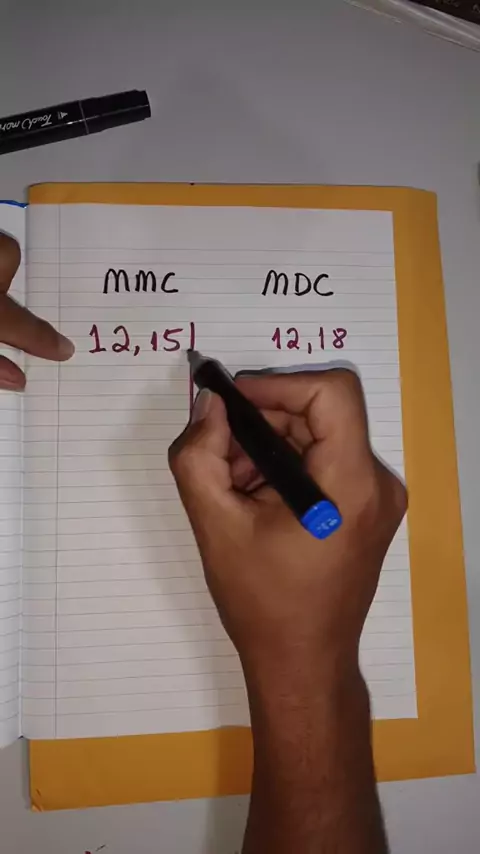 Touch
MMC MDC
12, 15 12, 18